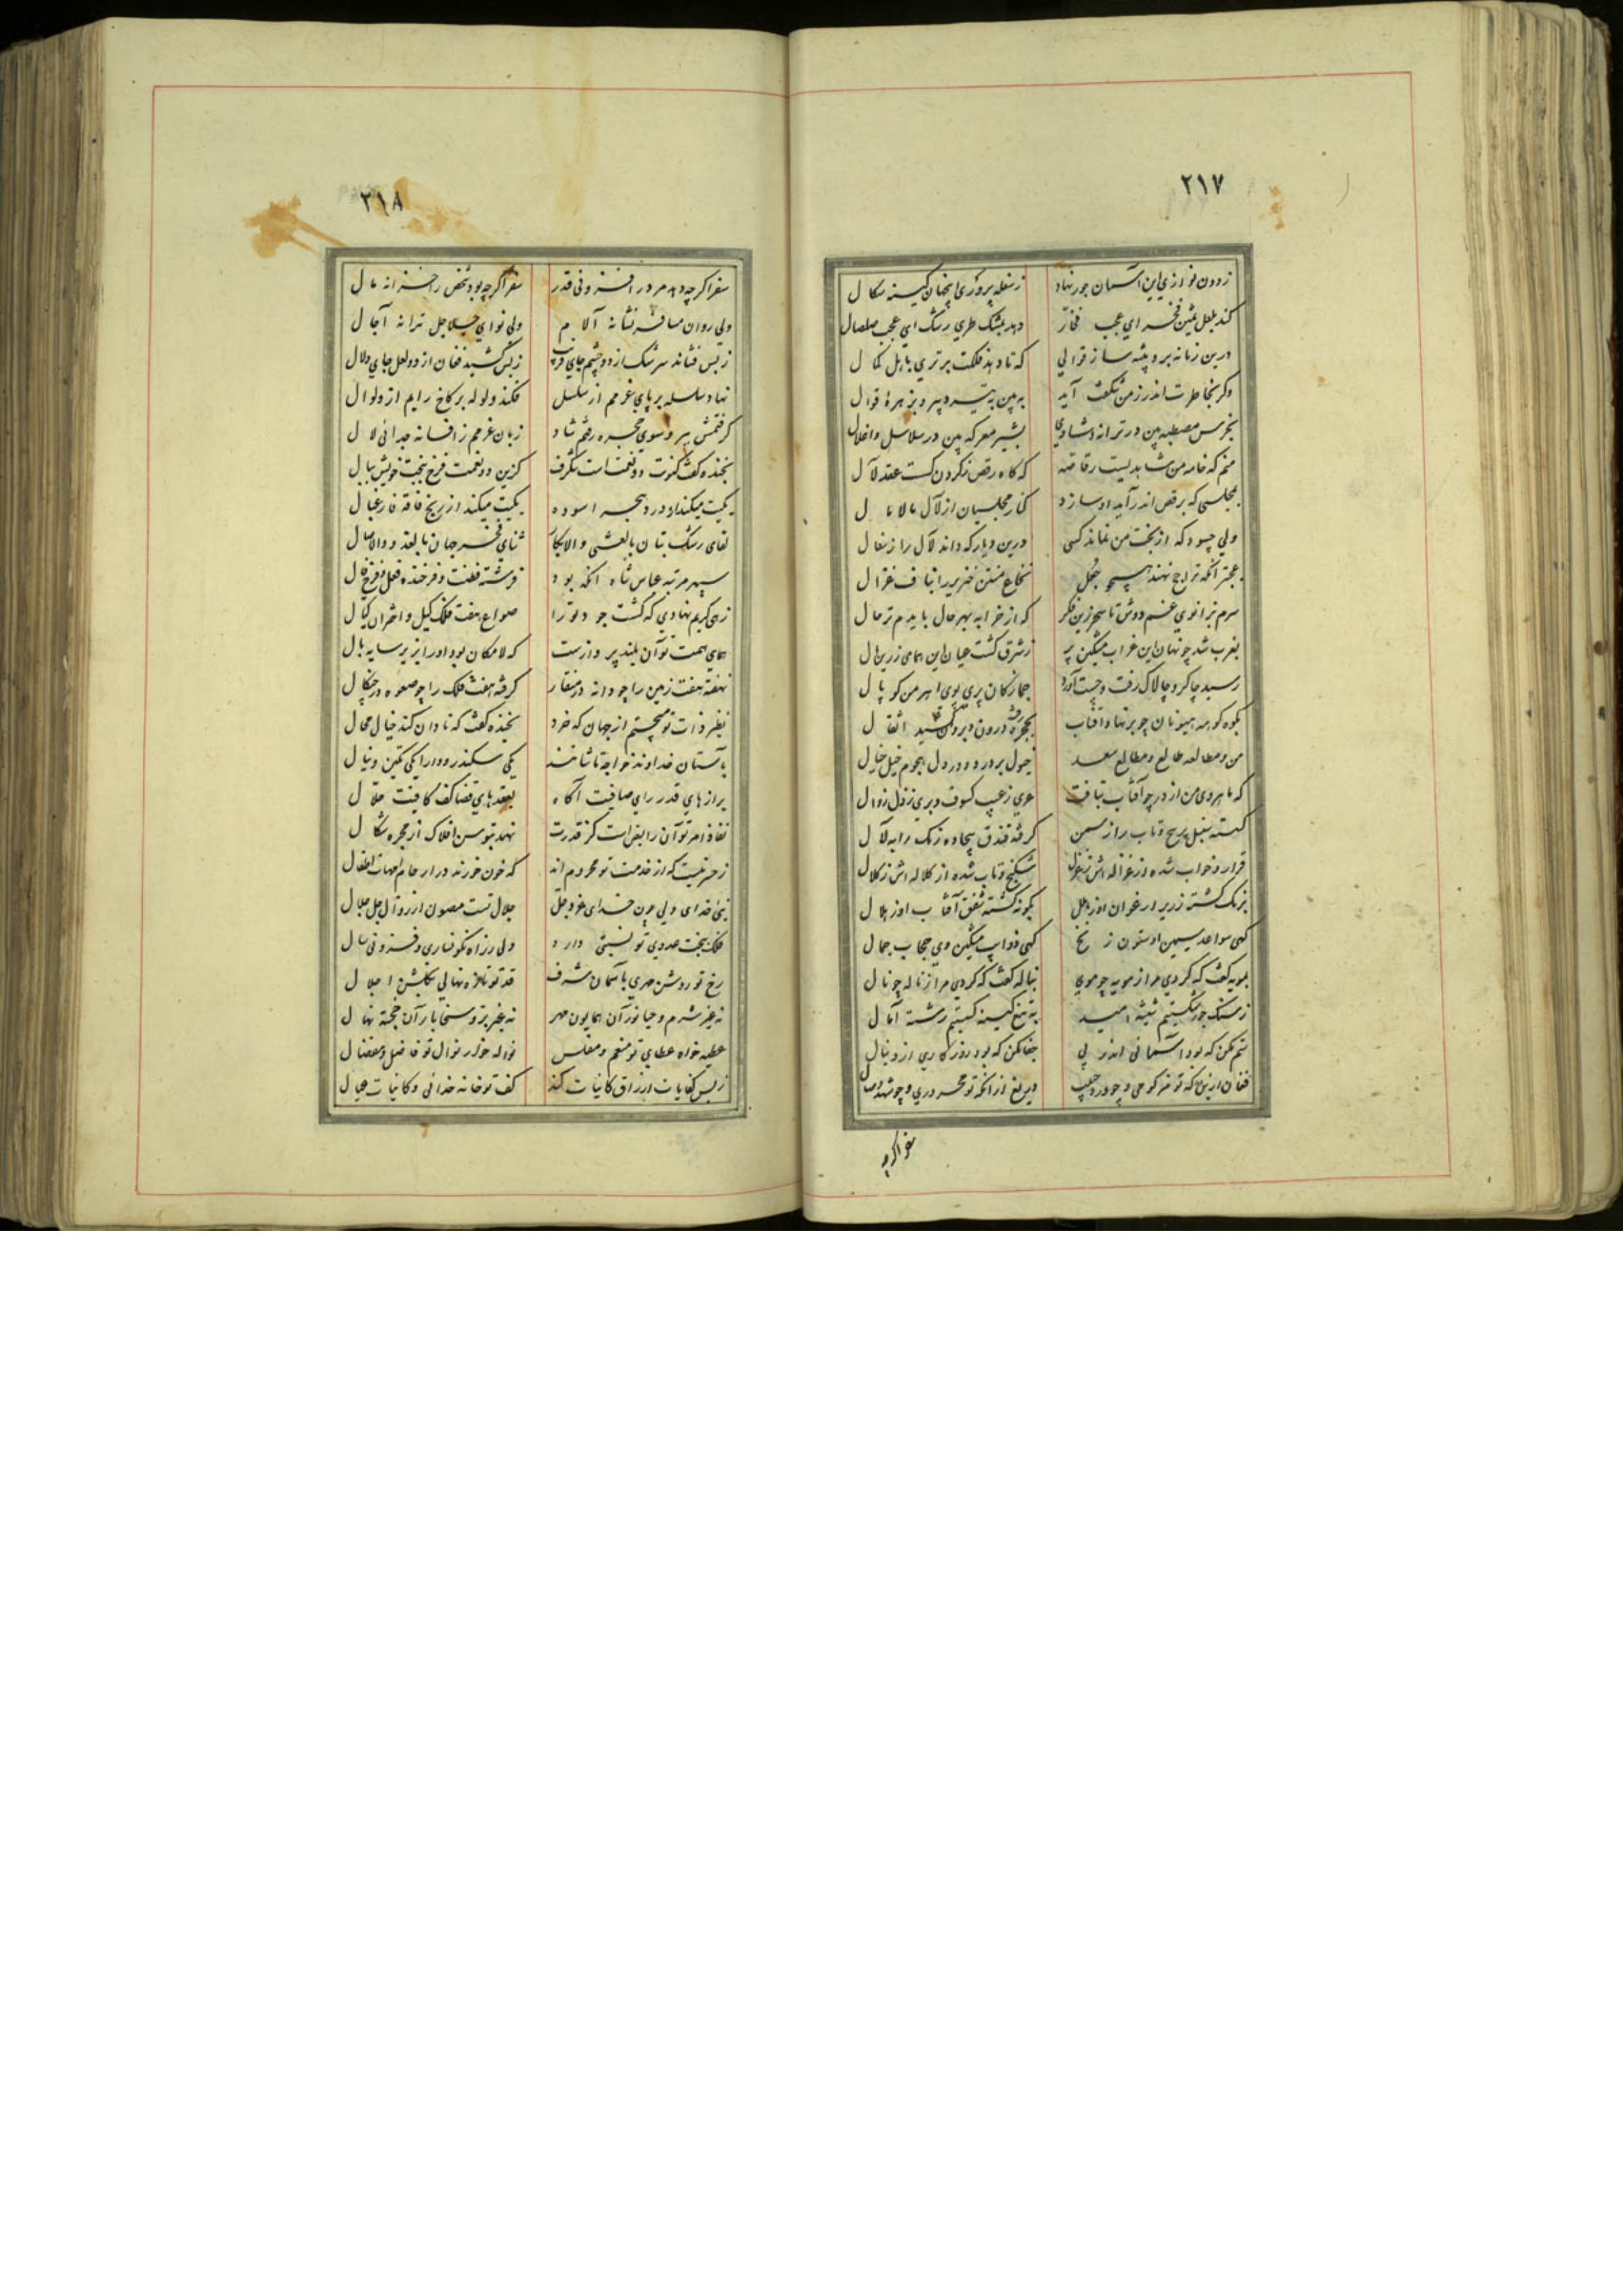 ۲۱۷
ز دون نوازی این آسمان جور نهاد ز سفله پروری اینجهان کینه سکال
کند بلعل ثمین فخر ای عجب فخّار دهد بمشک طری رشک ای عجب صلصال
درین زمانه برو پیشه ساز قوالی که تا دهد فلکت برتری باهل کمال
وکر بخاطرت اندر ز من شکفت آید به بین به تیر دبیر و بزهرهٔ قوال
بخرس مصطبه بین در ترانه و شادی بشیر معرکه بین در سلاسل و اغلال
منم که خامه من شاهدیست رقاصه که کاه رقص ز کردن کست عقد لآل
بمجلسی که برقص اندر آید او سازد کنار مجلسیان از لآل مالامال
ولی چسود که از بخت من نماند کسی درین دیار که داند لآل را ز سفال
عجبتر آنکه ترجیح نهند بهیچ جعل نخاع منتن خنزیر را بناف غزال
سرم بزانوی غم دوش تا سحر زین فکر که از خرابه بهر حال بایدم ترحال
بغرب شد چو نهان این غراب مشکین پر ز شرق کشت عیان این همای زرین بال
رسید چاکر و چالاک رفت و چست آورد جمازکان پری پوی اهرمن کوپال
بکوه کوهه هیونان چو بر نهاد آفتاب بحجره رفت درون و برون کشید اثقال
من و مطالعه طالع و مطالع سعد
که ماهروی من از در چو آفتاب بتافت عری ز عیب کسوف و بری ز ذل زوال
کسته سنبل پر پیچ و تاب را ز سمن کرفته فندق بیجاده رنک را به لآل
قرار و خواب شده از غزاله اش ز غزل شکنج و تاب شده از کلاله اش ز کلال
برنک کشته زریر ارغوان او ز اجل بکونه کشته شفق آفتاب او ز هلال
کهی سواعد سیمین او ستون زنخ کهی ذوایب مشکین وی حجاب جمال
بمویه کفت که کردی مرا ز مویه چو موی بناله کفت که کردی مرا ز ناله چو نال
ز سنک جور شکستیم شیشه امید به تیغ کینه کسستیم رشته آمال
ستم مکن که بود آسمانی اندر پی جفا مکن که بود روزکاری از دنبال
فغان ازینکه تو فرکوحی و چو در دجیب دریغ از آنکه تو محروری و چو شهد وصال
سفر اکرچه
۲۱۸
سفر اکرچه دهد مرد را فزونی قدر سفر اکرچه بود شخص را خزانه مال
ولی روان مسافر نشانه آلام ولی نوای جلاجل ترانه آجال
ز بس فشاند سرشک از دو چشم جای فریب ز بس کشید فغان از دو لعل جای دلال
نهاد سلسله بر پای عزمم از سلسل فکند ولوله بر کاخ رایم از ولوال
کرفتمش بر و سوی حجره رفتم شاد زبان عزمم ز افسانه جدائی لال
بخنده کفت کنونت دو نعمت است شکرف کزین دو نعمت فرخ ببخت خویش ببال
یکیت میکند از درد هجر آسوده یکیت میکند از رنج فاقه فارغبال
لقای رشک بتان بالعشی والابکار ثنای فخر جهان بالغدو والاصال
سپهر مرتبه عباس شاه آنکه بود فرشته فطنت و فرخنده فعل و فرخ فال
زهی کریم نهادی که کشت جود تو را صواع هفت فلک کیل و اختران کیال
همای همت تو آن بلند پروازست که لامکان بود او را بزیر سایه بال
نهفته هفت زمین را چو دانه در منقار کرفته هفت فلک را چو صعوه در چنکال
نظیر ذات تو میجستم از جهان که خرد بخنده کفت که نادان کند خیال محال
بآستان خداوند خواجه تاشانند یکی سکندر و دارا یکی تکین و نیال
برازهای قدر رای صافیت آکاه بعقدهای قضا کف کافیت حلال
نفاذ امر تو آن رایض است کز قدرت نهد بتوسن افلاک از مجره شکال
ز حسرتیست که از خدمت تو محرومند که خون خورند در ارحام امهات اطفال
نئی خدای ولی چون خدای عز و جل جلال تست مصون از زوال جل جلال
فلک ببخت عدوی تو نسبتی دارد ولی ز راه نکونساری و فزونی سال
رخ تو روشن مهری بآسمان شرف قد تو تازه نهالی بکلشن اجلال
نه غیر شرم و حیا نور آن همایون مهر نه غیر بر و سخا بار آن خجسته نهال
عطیه خواه عطای تو منعم و مفلس نواله خوار نوال تو فاضل و مفضال
ز بس کفایات ارزاق کاینات کند کف تو خانه خدائی و کاینات عیال